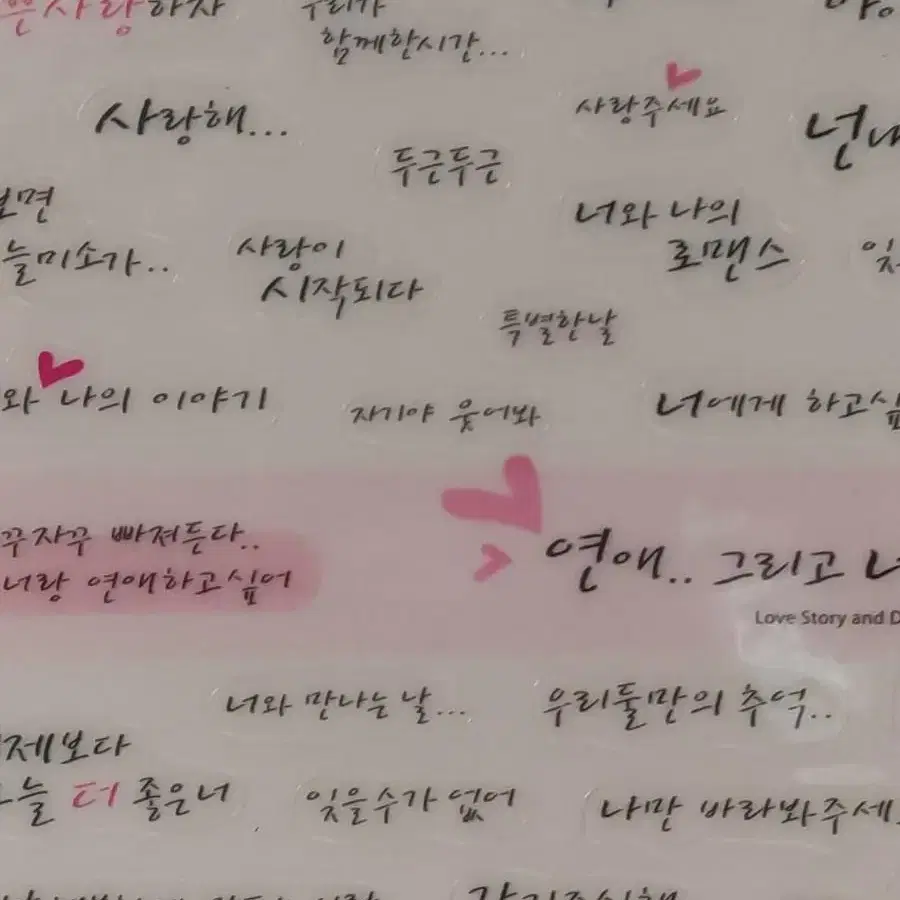 사랑하자
우리가
함께한시간...
사랑해...
사랑주세요
두근두근
넌
보면
너와 나의
로맨스
늘미소가..
사랑이
시작되다
특별한날
와 나의 이야기
자기야 웃어봐
너에게 하고싶
꾸자꾸 빠져든다..
너랑 연애하고싶어
연애.. 그리고
Love Story and D
너와 만나는 날...
우리둘만의 추억..
제보다
늘 더 좋은너
잊을수가 없어
나만 바라봐주세